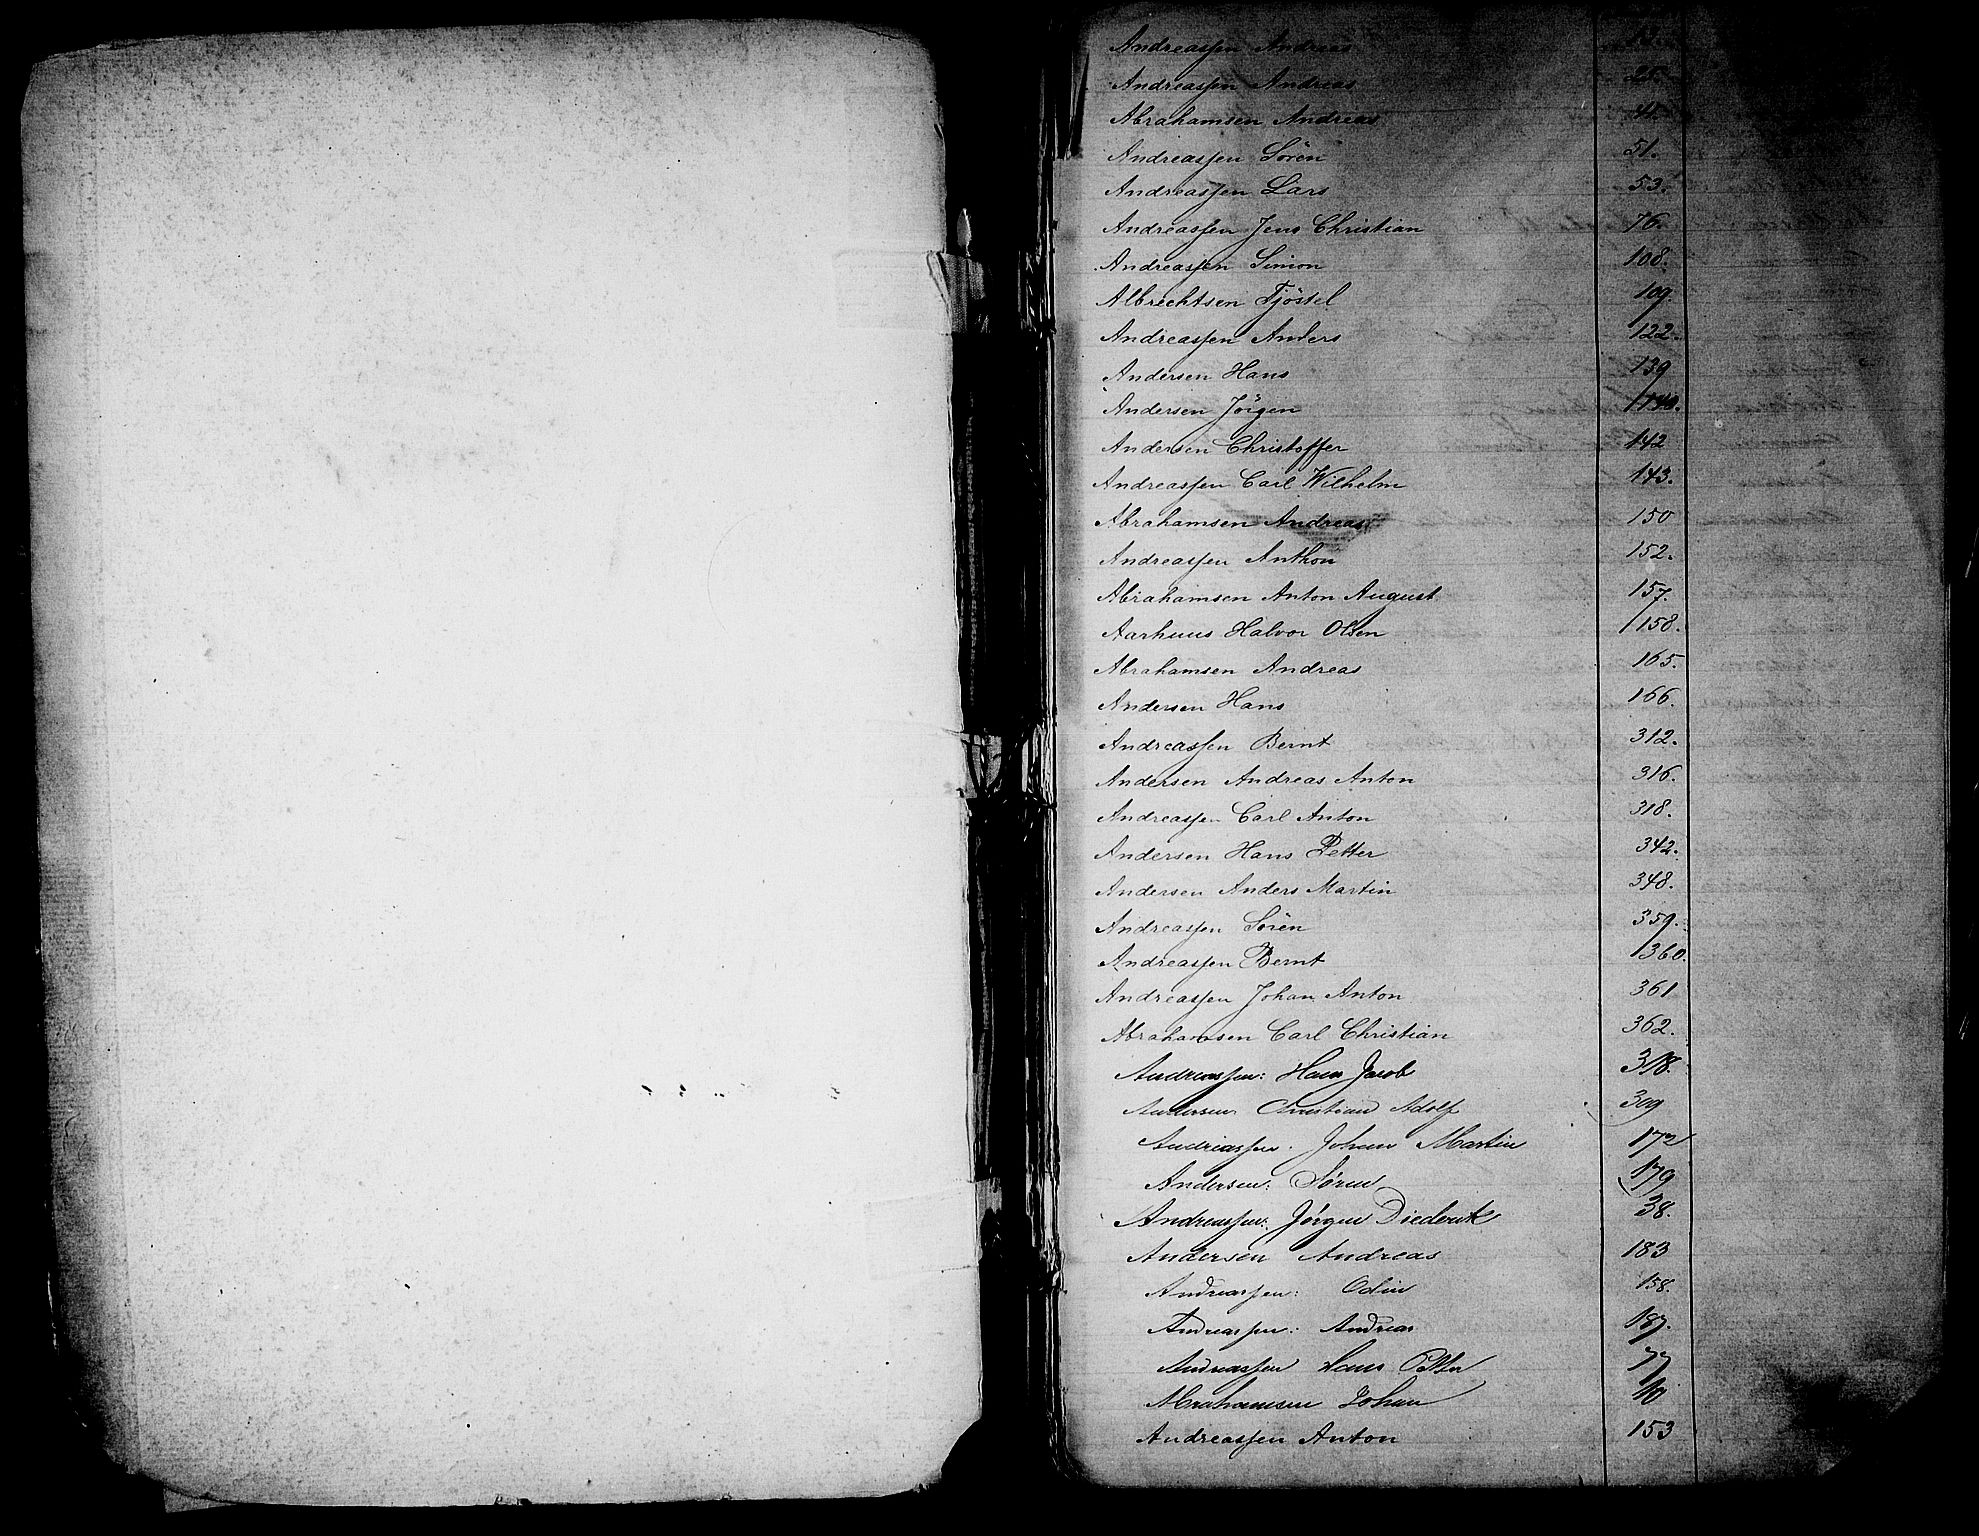 Andreassen Andreas
Andreassen Andreas 25.
Abrahamsen Andreas
Andreassen Sören 51.
Andreassen Lars 53.
Andreassen Jens Christian 76.
Andreassen Simon 108.
Albrechtsen Tjöstel 109.
Andreassen Anders 122.
Andersen Hans 139
Andersen Jörgen 140.
Andersen Christoffer 142
Andreassen Carl Wilhelm 143.
Abrahamsen Andreas 150
Andreassen Anthon 152.
Abrahamsen Anton August 157.
Aarhuus Halvor Olsen 158.
Abrahamsen Andreas 165.
Andersen Hans 166.
Andreassen Bernt 312.
Andersen Andreas Anton 316.
Andreassen Carl Anton 318.
Andersen Hans Petter 342.
Andersen Anders Martin 348.
Andreassen Sören 359.
Andreassen Bernt 360.
Andreassen Johan Anton 361
Abrahamsen Carl Christian 362.
Andreassen: Hans Jacob 318.
Andersen Christian Adolf 309
Andreassen. Johan Martin 172
Andersen: Søren 179
Andreassen: Jørgen Diederik 38.
Andersen Andreas 183
Andreassen: Odin 158.
Andreassen: Andreas 187.
Andreassen Hans Petter 77
Abrahamsen Johan
Andreassen Anton 153